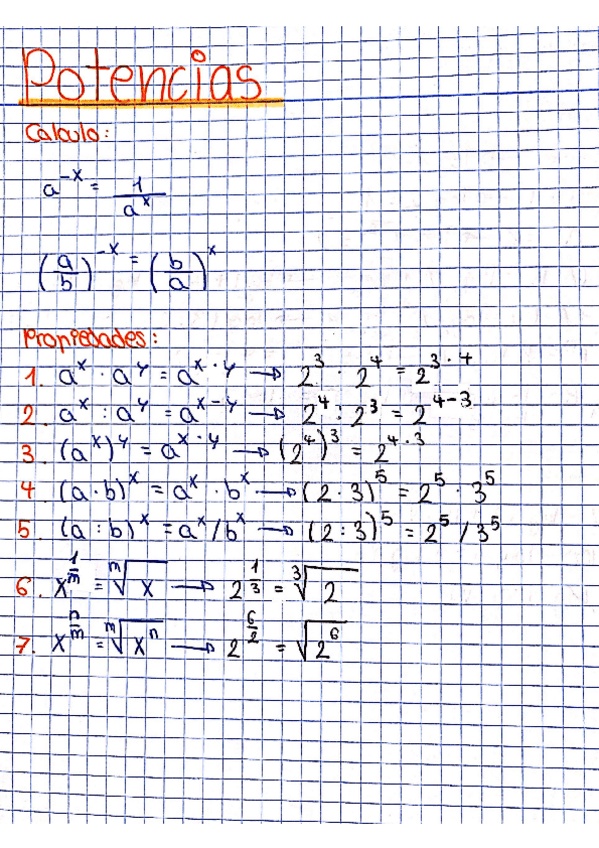 Potencias
Calculo:
a^-x = 1/a^x
(a/b)^-x = (b/a)^x
Propiedades:
1. a^x · a^y = a^x·y → 2^3 · 2^4 = 2^3·4
2. a^x : a^y = a^x-y → 2^4 : 2^3 = 2^4-3
3. (a^x)^y = a^x·y → (2^4)^3 = 2^4·3
4. (a·b)^x = a^x · b^x → (2·3)^5 = 2^5 · 3^5
5. (a:b)^x = a^x/b^x → (2:3)^5 = 2^5/3^5
6. x^1/m = m√x → 2^1/3 = 3√2
7. x^n/m = m√x^n → 2^6/2 = √2^6